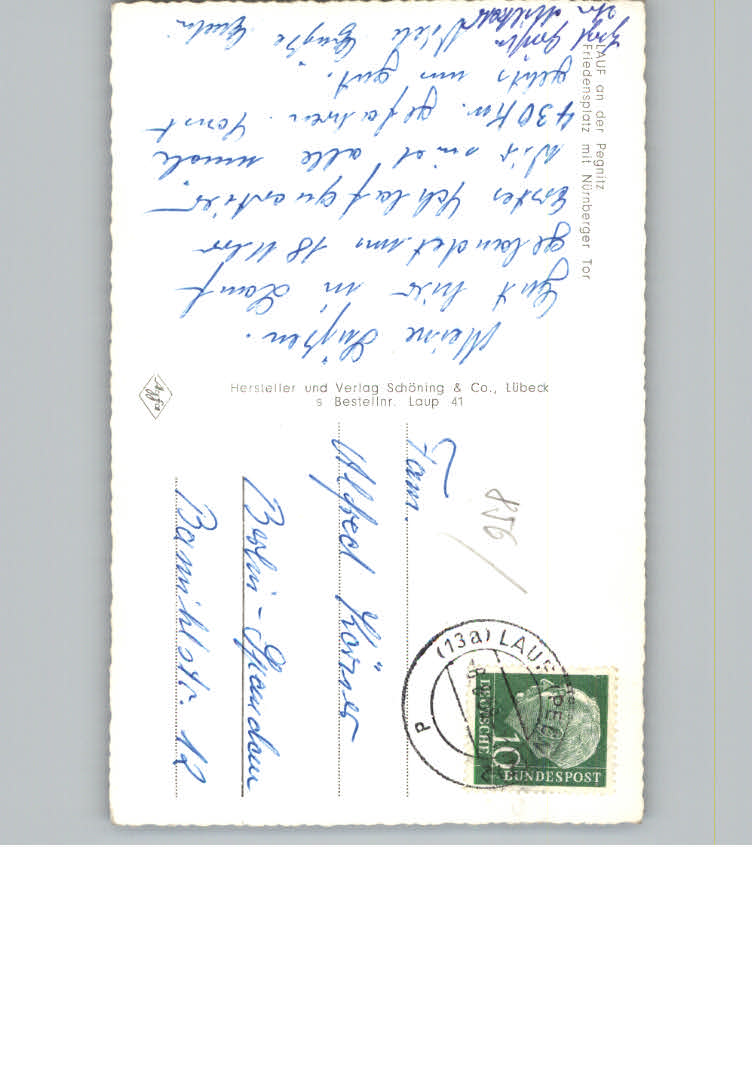 LAUF an der Pegnitz
Friedensplatz mit Nürnberger Tor
Meine Süßen.
Gut hier in Lauf
gelandet um 18 Uhr
Erstes Schlafquartier
Wir sind alle
430 Km. gefahren. Sonst
gehts uns gut.
Viele Grüße
Hersteller und Verlag Schöning & Co., Lübeck
s Bestellnr. Laup 41
Agfa
856
Fam.
Alfred Körner
Berlin-Spandau
12
(13a) LAUF (PEGN
DEUTSCHE
10
BUNDESPOST